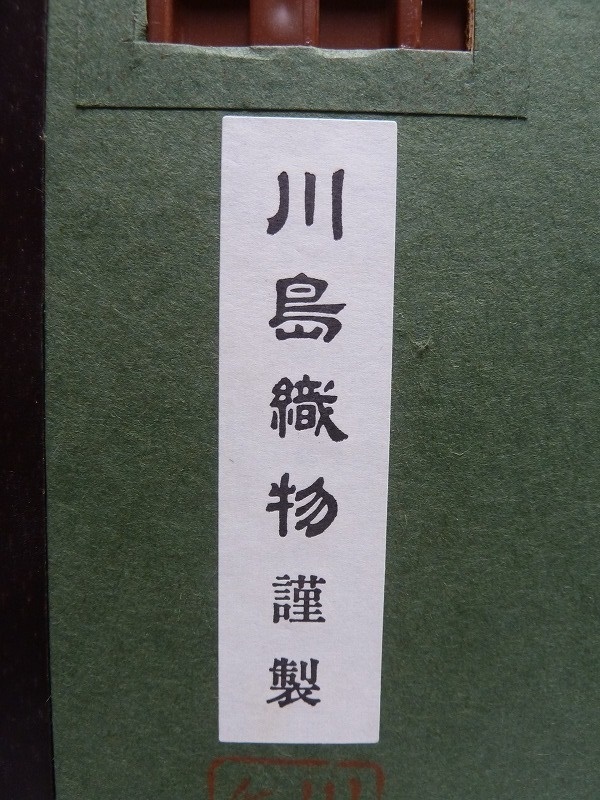 川島織物謹製